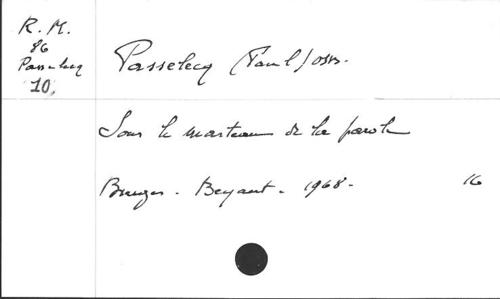 R. M.
86
Passelecq
10.
Passelecq (Paul)
Sous le marteau de la parole
Bruges - Beyaert - 1968 -
16